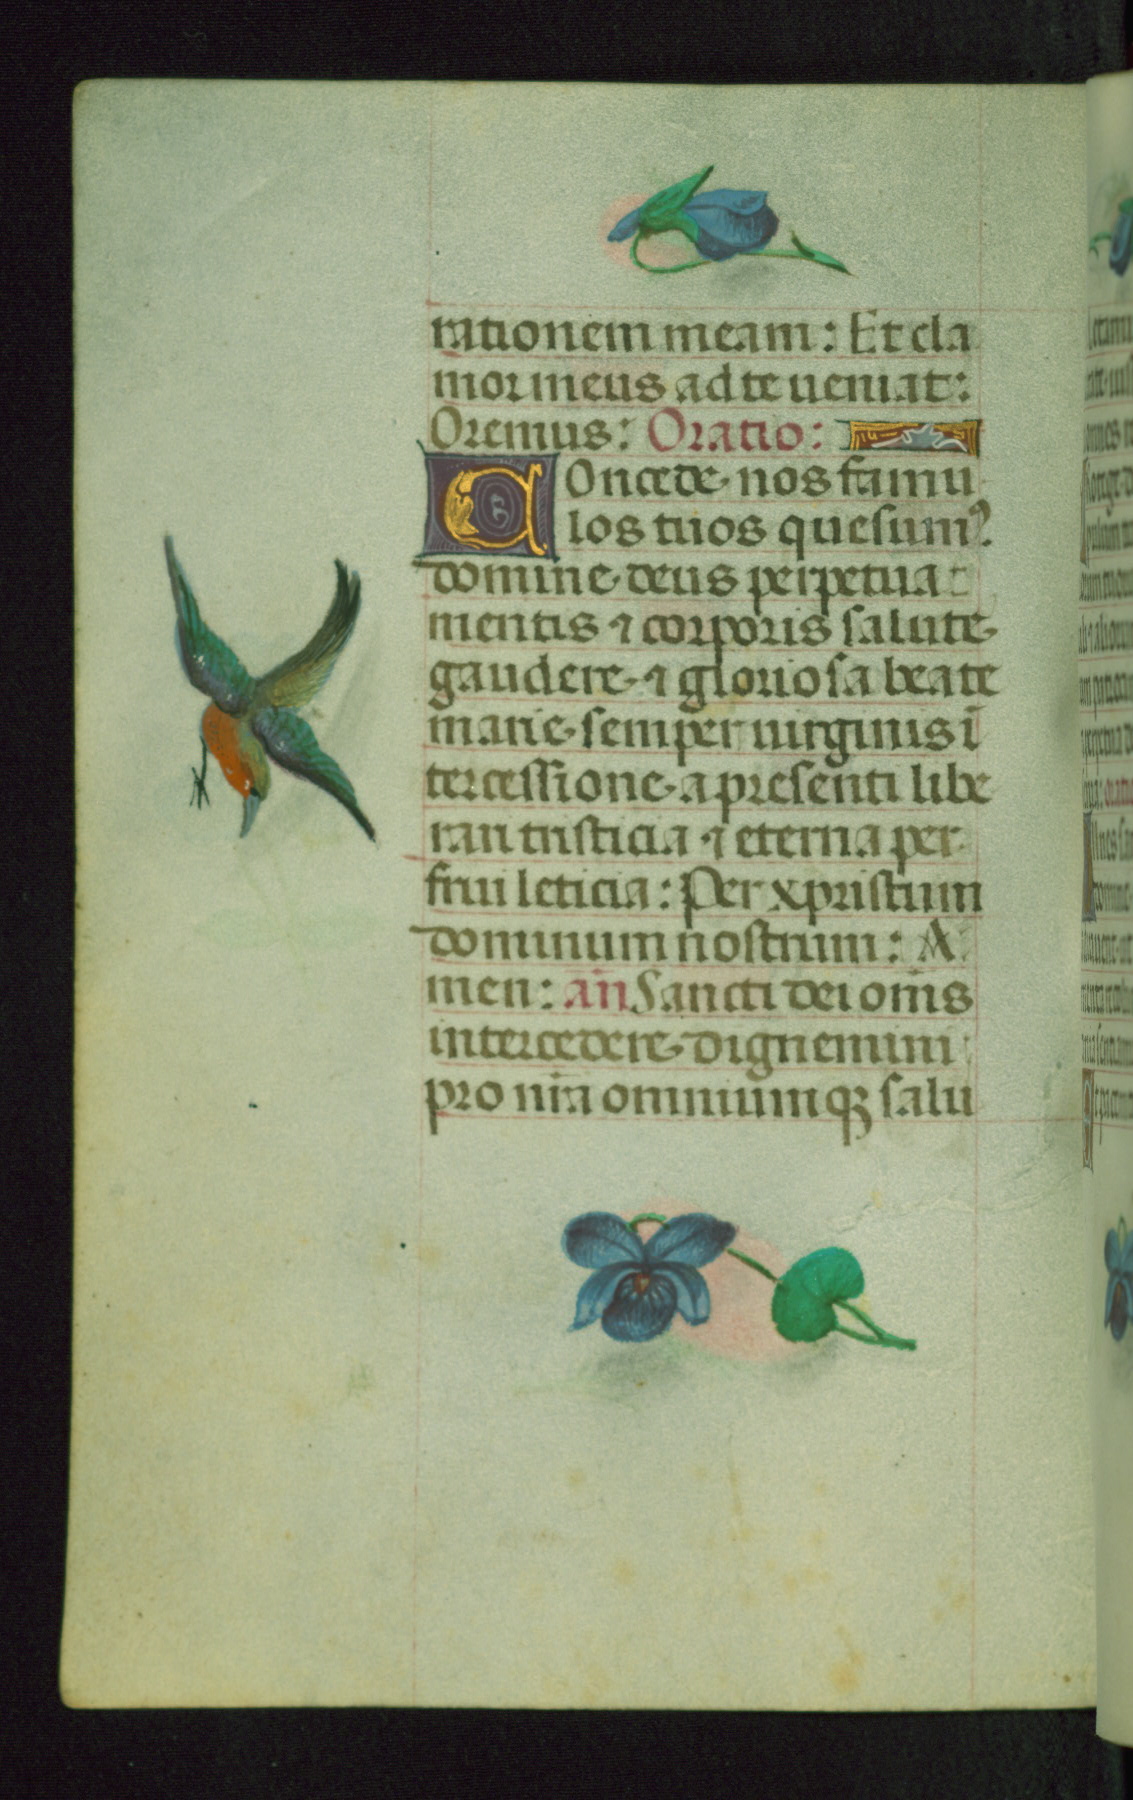 rationem meam : Et cla
mor meus ad te ueniat :
Oremus : Oratio :
COncede nos famu
los tuos quesumꝰ
domine deus perpetua
mentis ⁊ corporis salute
gaudere ⁊ gloriosa beate
marie semper uirginis ī
tercessione a presenti libe
rari tristicia ⁊ eterna per
frui leticia : Per xpristum
dominum nostrum : A
men : an̄ Sancti dei om̄s
intercedere dignemini
pro nr̄a omniumqꝫ salu